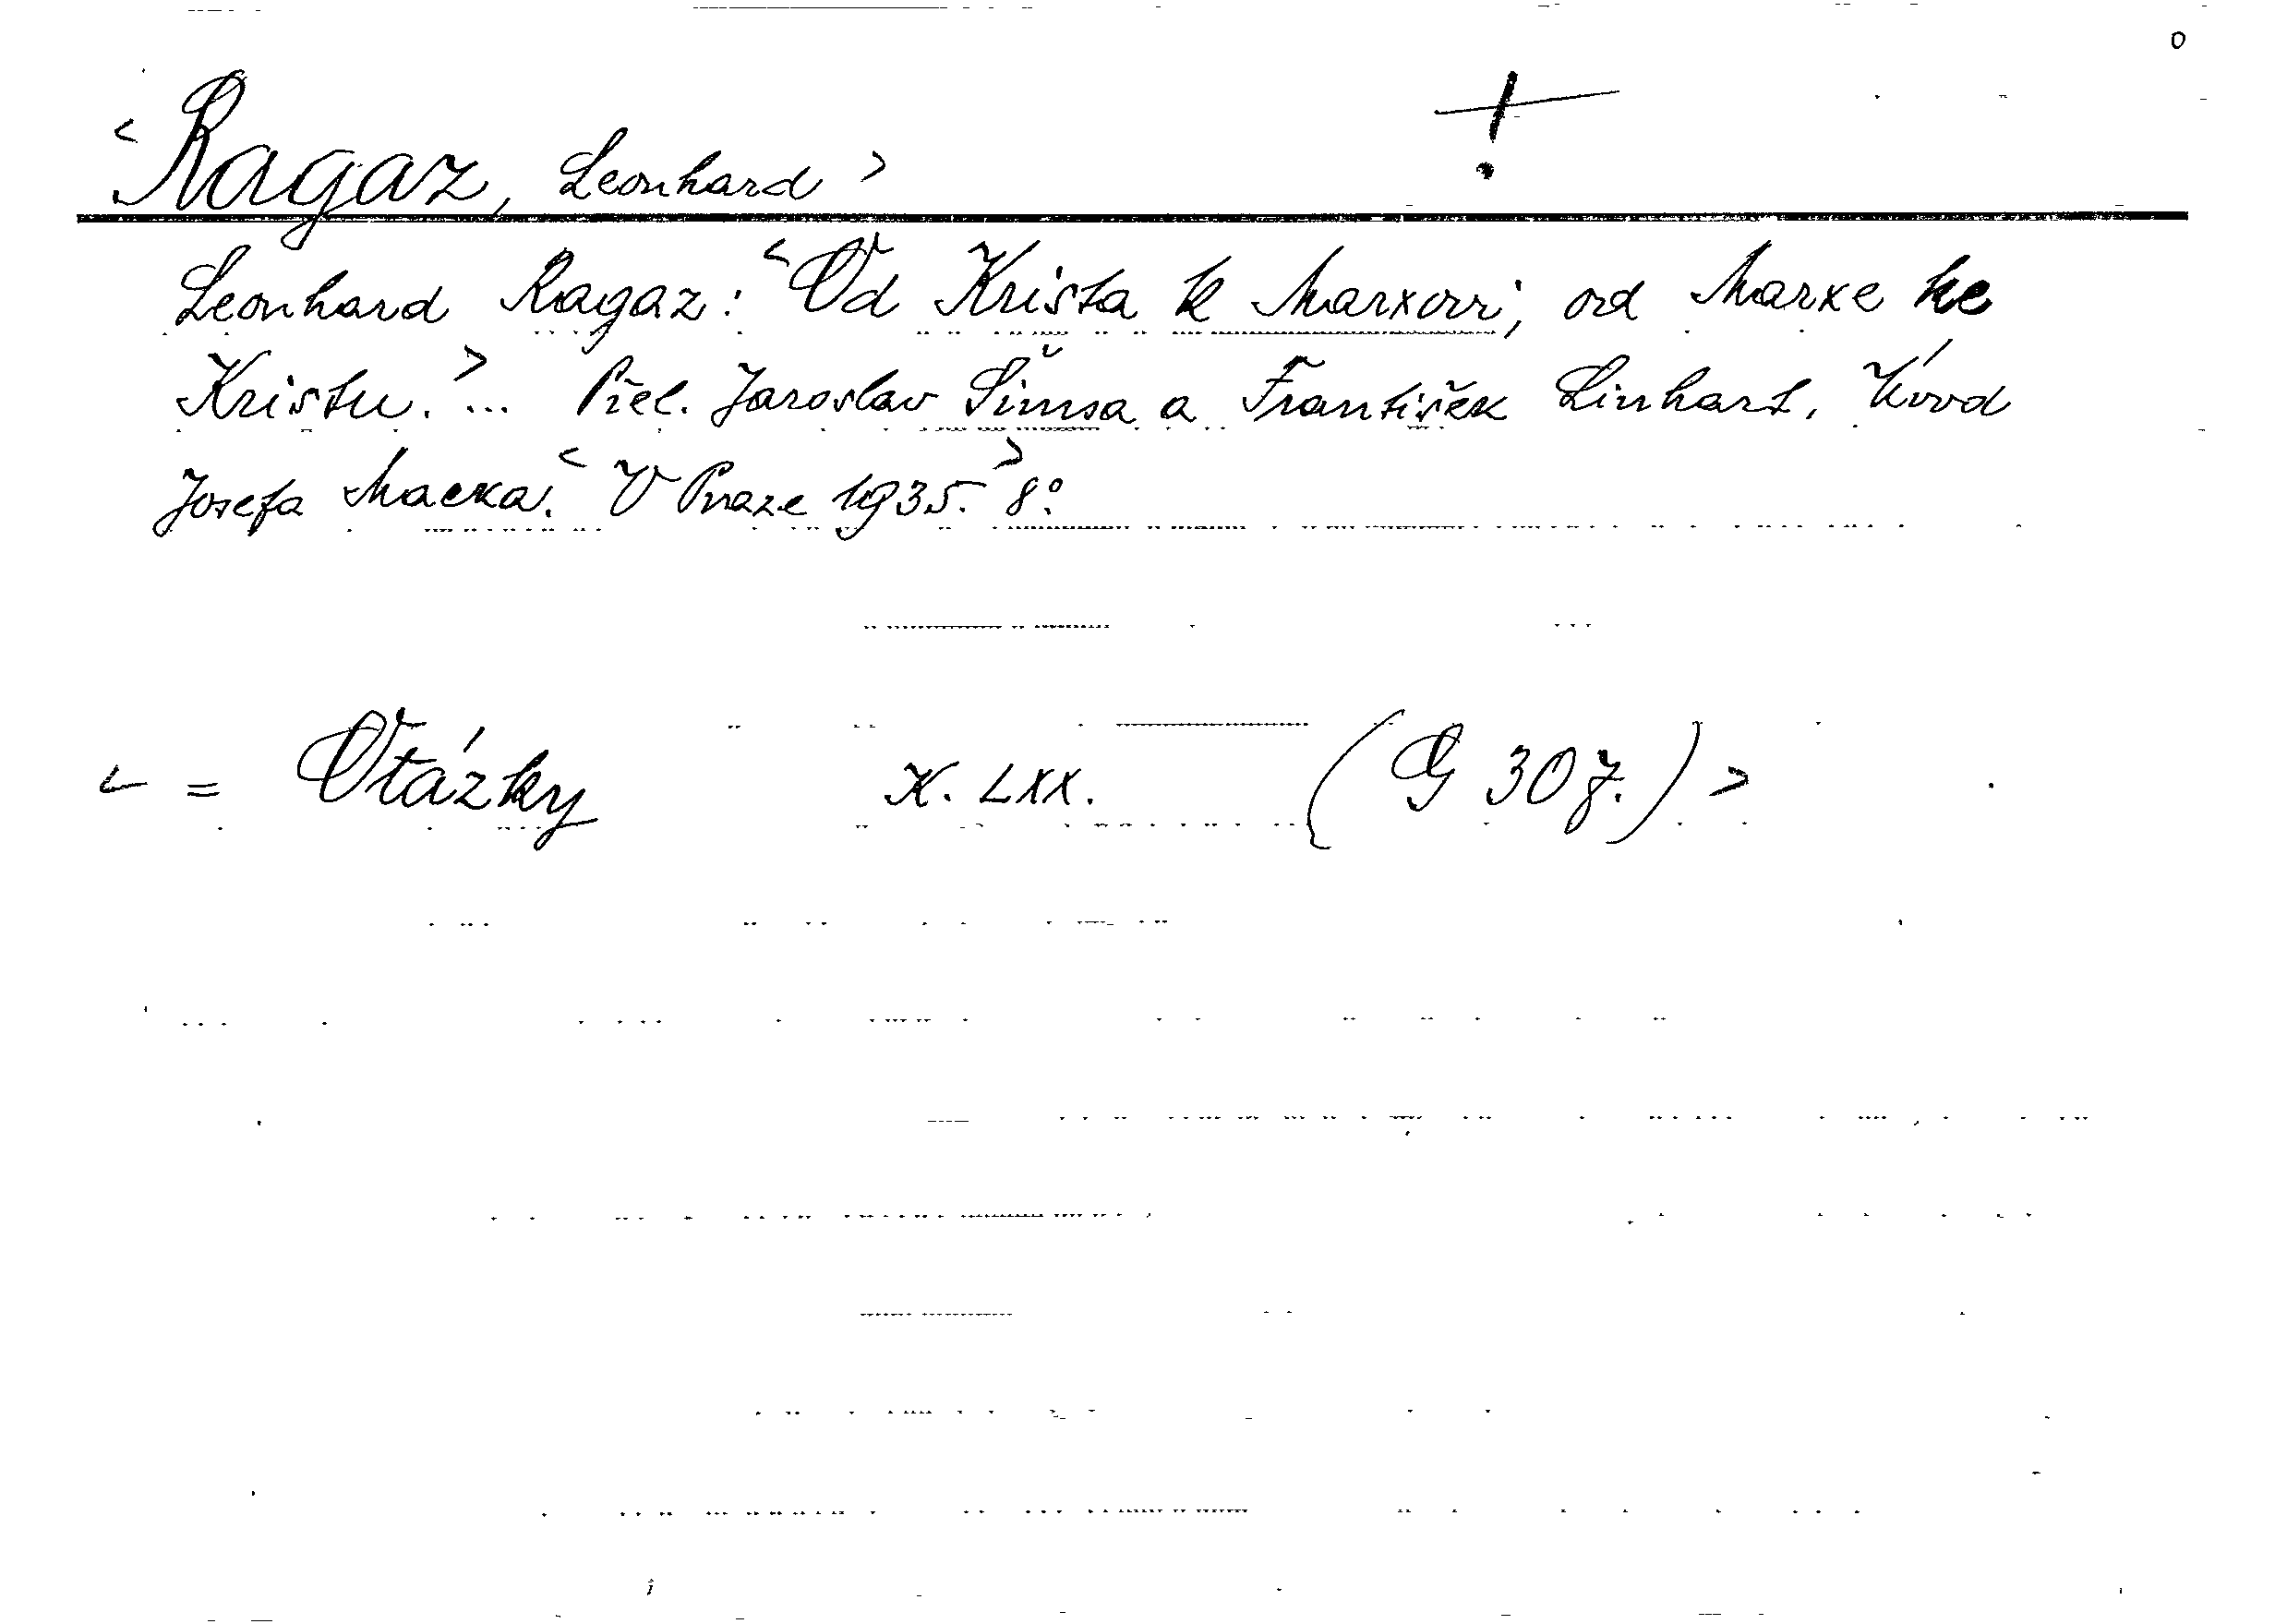 <Ragaz, Leonhard> !
Leonhard Ragaz: <Od Krista k Marxovi; od Marxe ke
Kristu.>... Přel. Jaroslav Šimsa a František Linhart. Úvod
Josefa Macka. <V Praze 1935.> 8°.
< = Otázky K. LXX. (G 307.) >